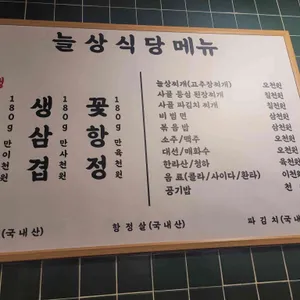 늘상식당메뉴
180g 만이천원
생삼겹
180g 만사천원
꽃항정
180g 만육천원
늘상찌개(고추장찌개) 오천원
사골 등심 된장찌개 칠천원
사골 파김치 찌개 칠천원
비빔면 삼천원
볶음밥 삼천원
소주/맥주 오천원
대선/매화수 오천원
한라산/청하 육천원
음료(콜라/사이다/환타) 이천원
공기밥 천
(국내산) 항정살(국내산) 파김치(국내산